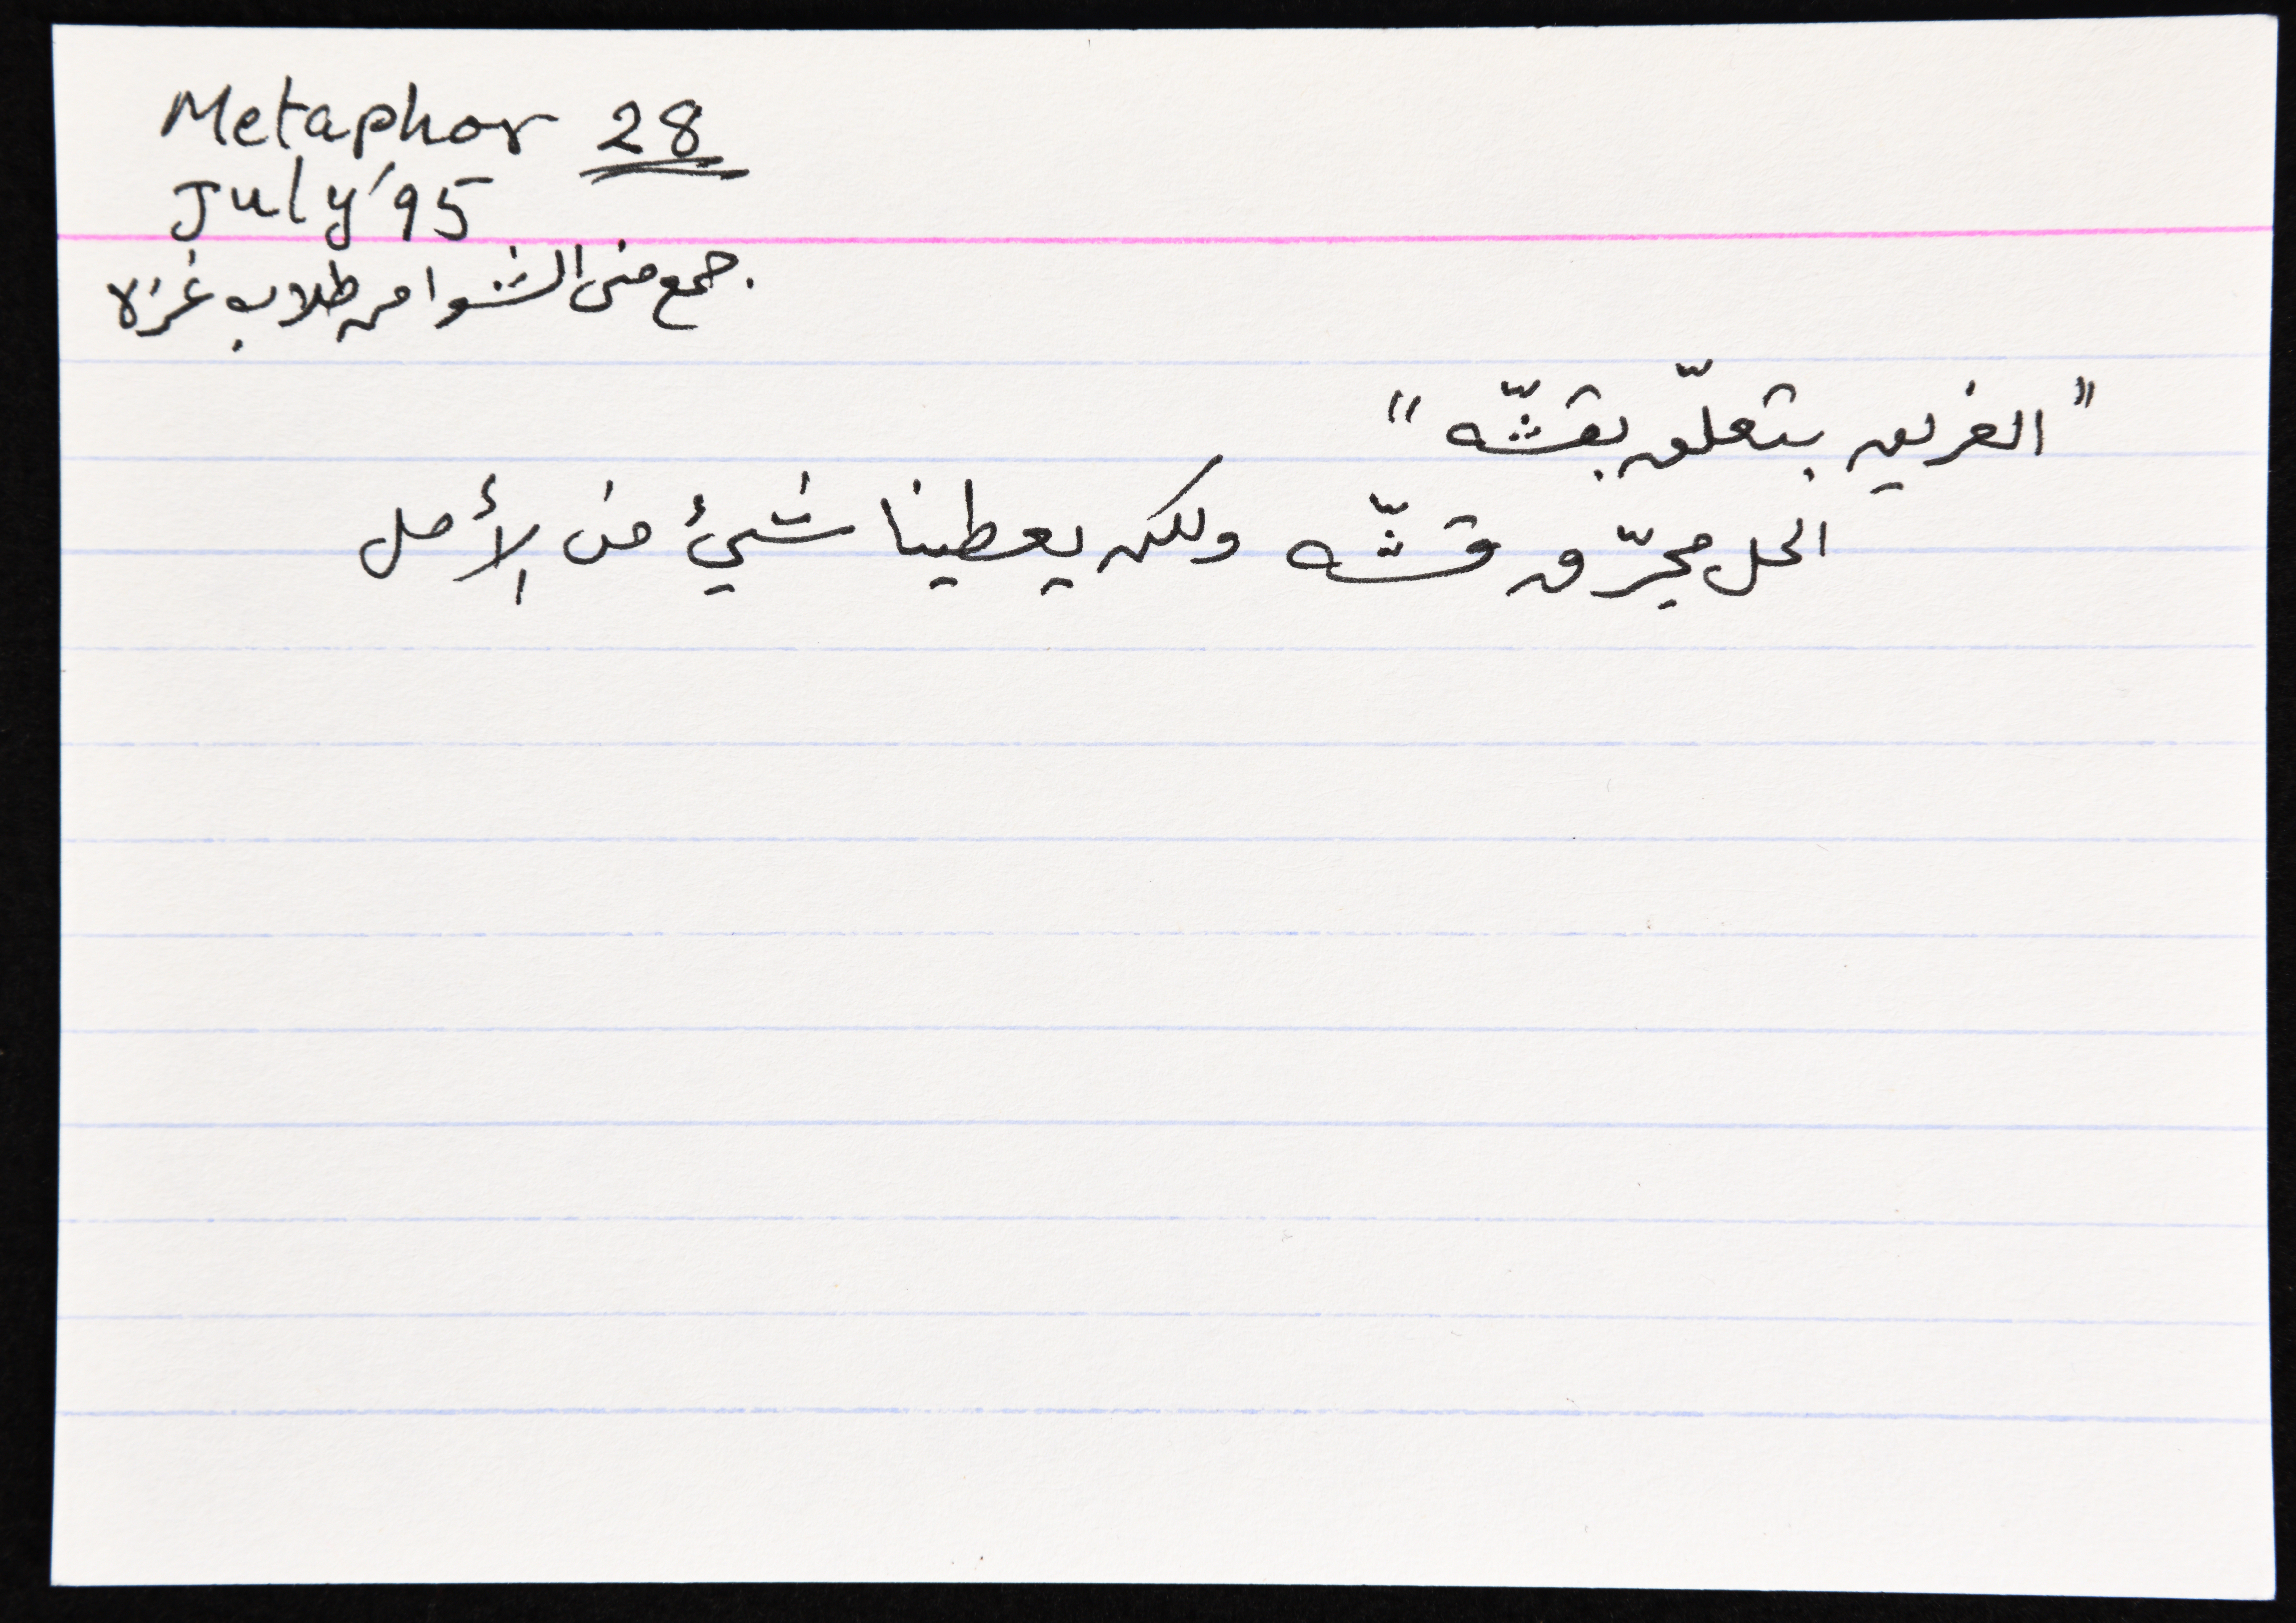 Metaphor 28
July '95
جمع منى الشوا من طلاب غزه
"الغريق بتعلّق بقشّه"
الحل مجرّد قشّه ولكن يعطينا شيئ من الأمل